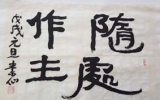 隨處
作主
戊戌元旦